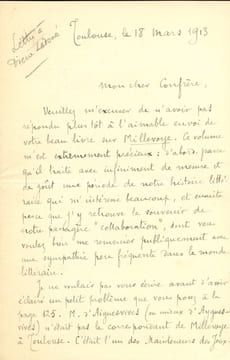 Lettre à
Toulouse, le 18 Mars 1913
Mon cher Confrère,
Veuillez m'excuser de n'avoir pas
répondu plus tôt à l'aimable envoi de
votre beau livre sur Millevoye. Ce volume
m'est extrêmement précieux : d'abord, parce
qu'il traite avec infiniment de mesure et
de goût une période de notre histoire litté-
raire qui m'intéresse beaucoup, et ensuite
parce que j'y retrouve le souvenir de
notre passagère "collaboration", dont vous
voulez bien me remercier publiquement avec
une sympathie peu fréquente dans le monde
littéraire.
Je ne voulais pas vous écrire avant d'avoir
éclairci un petit problème que vous posez à la
page 125. M. d'Aiguesvives (ou mieux d'Aygues-
vives) n'était pas le correspondant de Millevoye
à Toulouse. C'était l'un des Mainteneurs des Jeux-